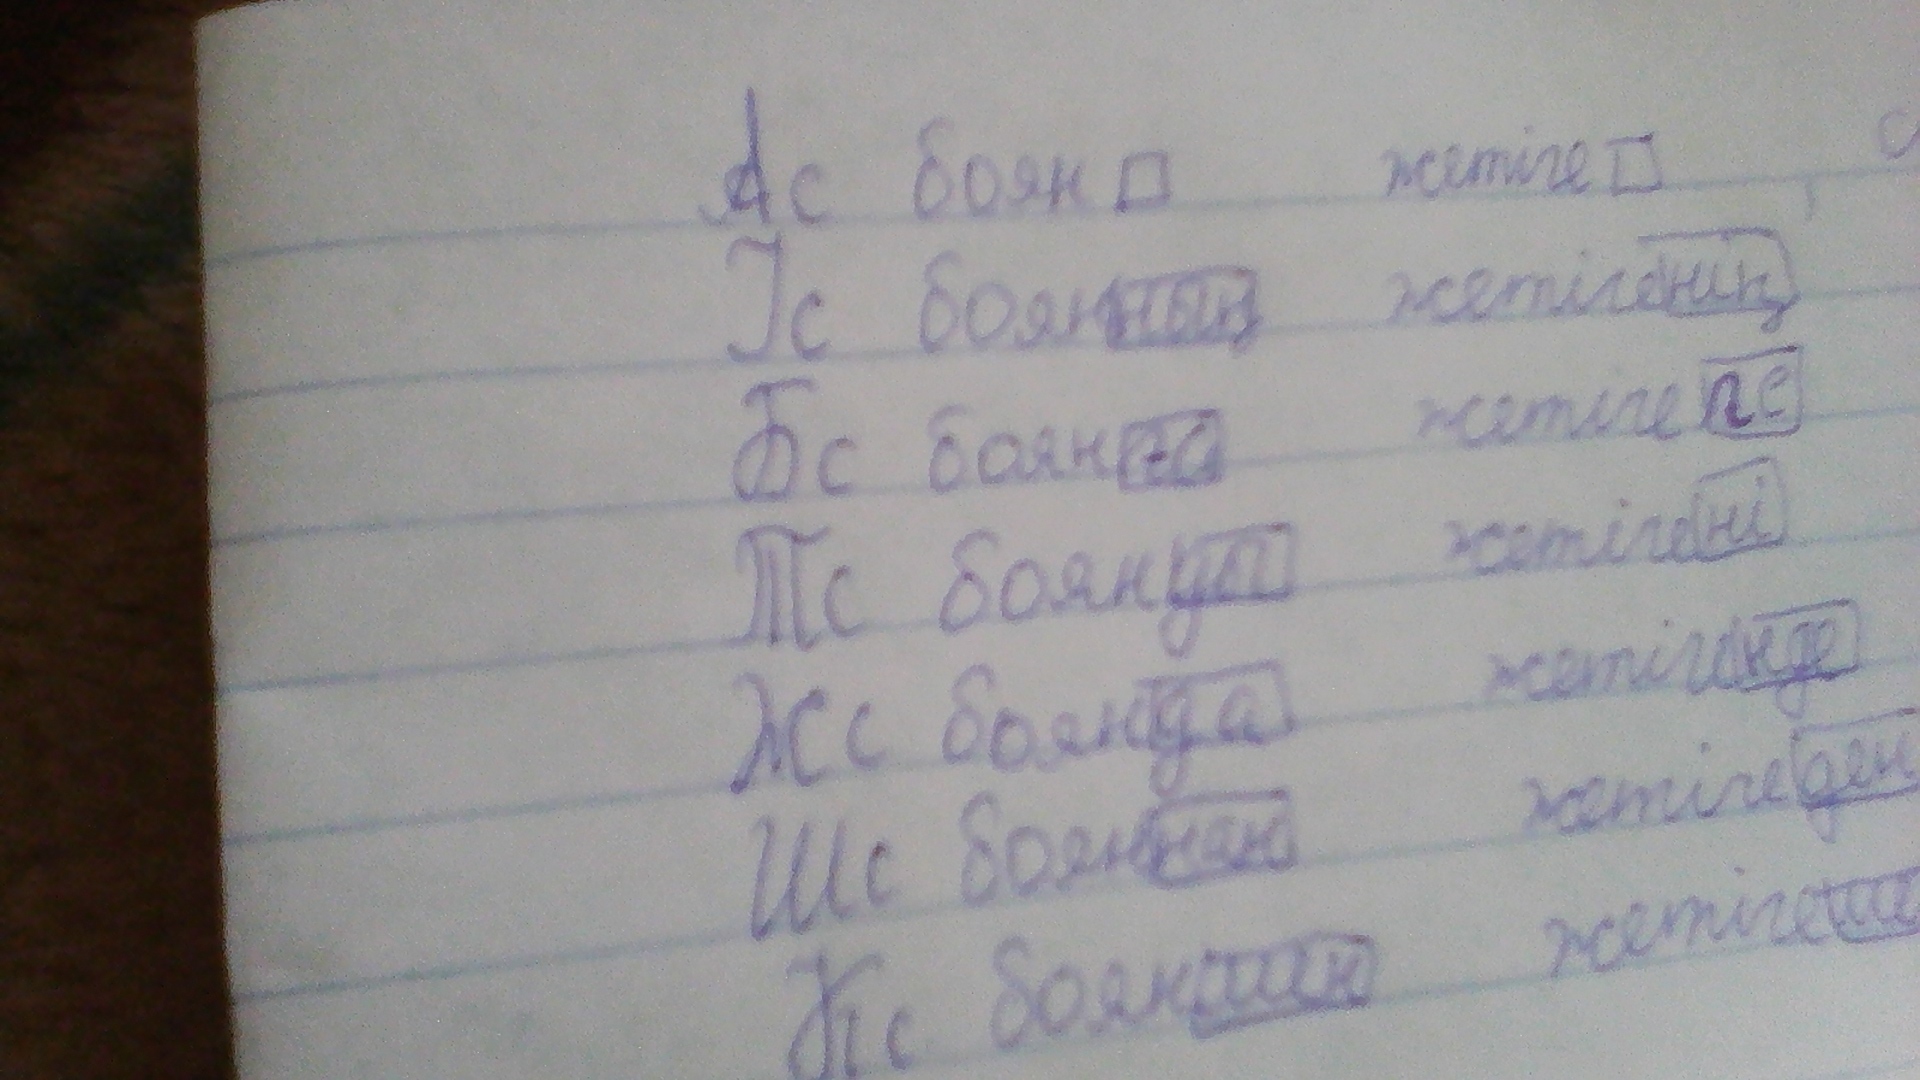 Ас боян□ жетіге□
Іс боянның жетігенің
Бс боян жетіге
Тс боянды жетігені
Жс боянда жетігенде
Шс бояннан жетігеден
Кс боян жетіге